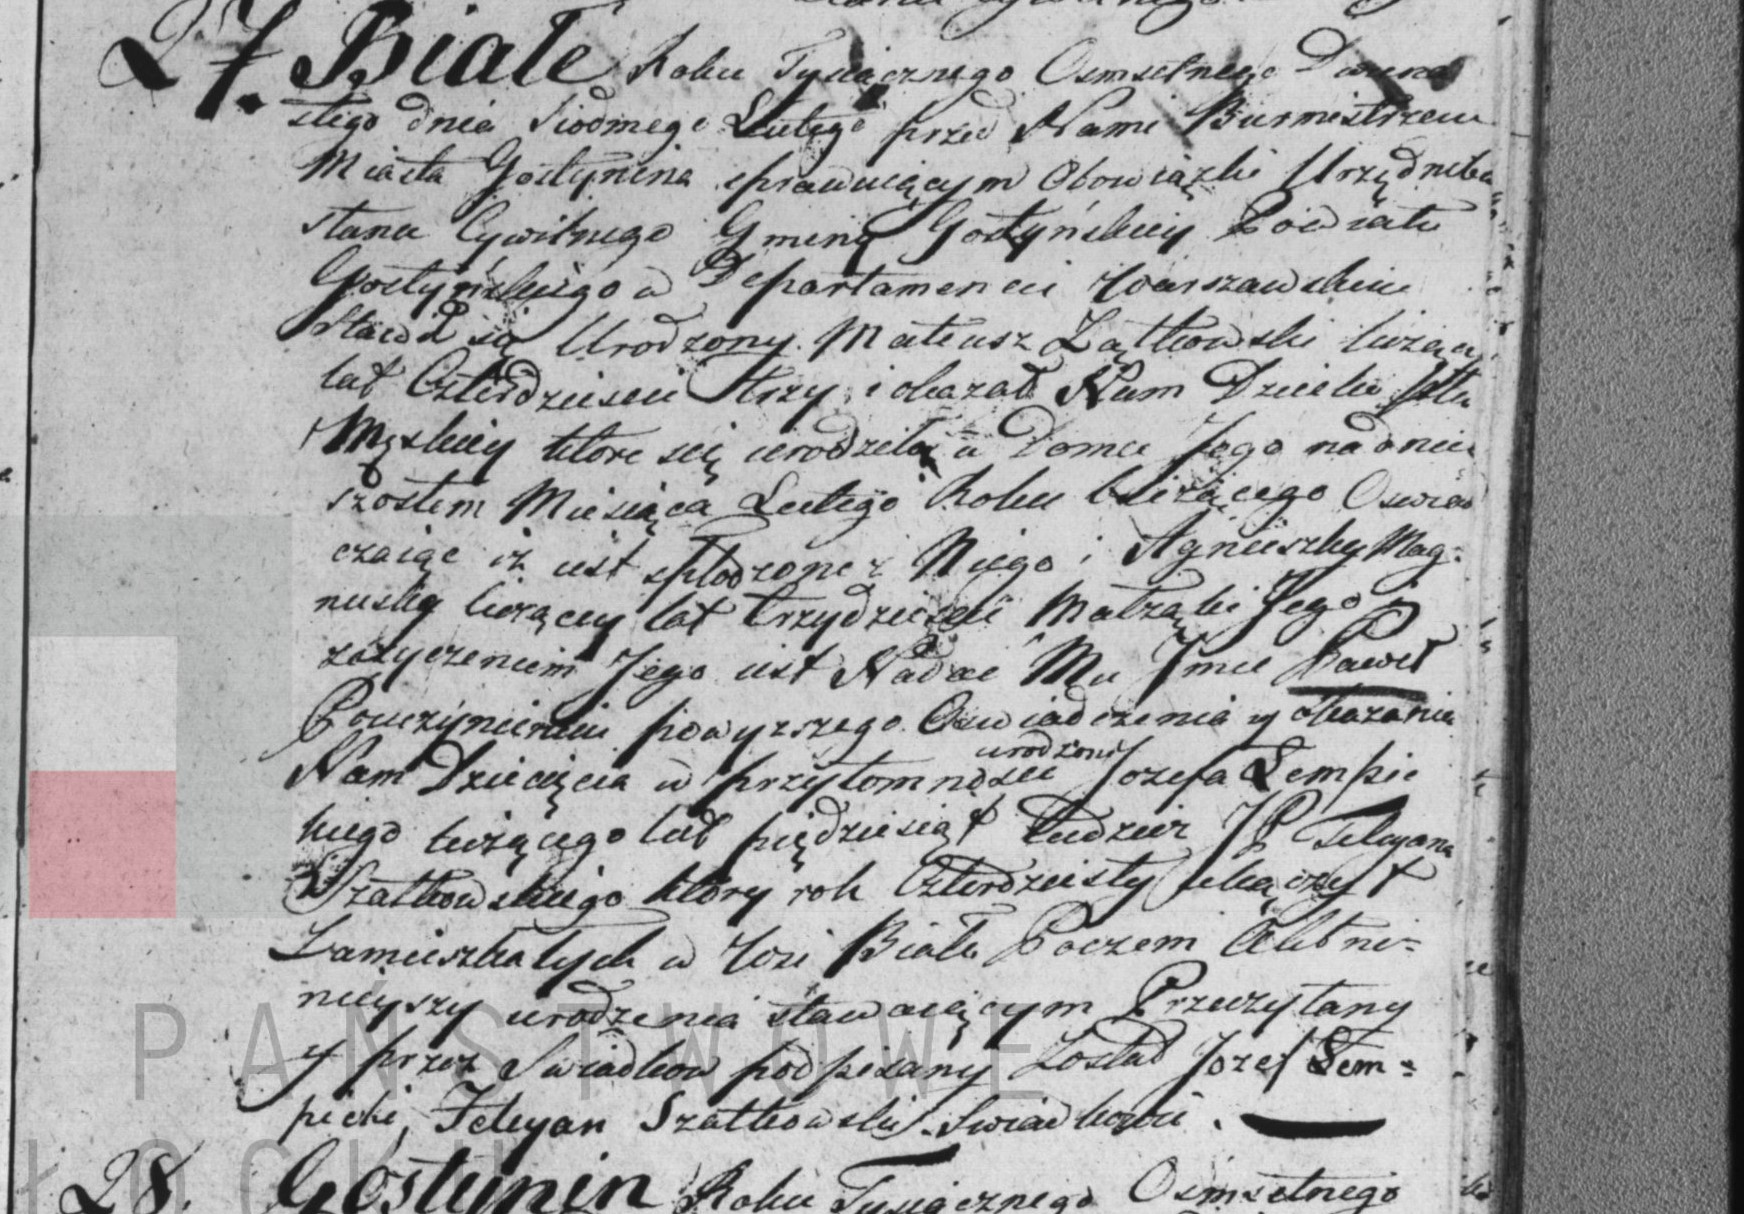 27. Białe Roku Tysiącznego Osmsetnego Dwuna
stego dnia Siodmego Lutego przed Nami Burmistrzem
Miasta Gostynina sprawuiącym Obowiązki Urzędnika
stanu Cywilnego Gminy Gostyńskiey Powiatu
Gostyńskiego w Departamencie Warszawskim
stawił się Urodzony Mateusz Żątkowski liczący
lat Czterdziesci trzy i okazał Nam Dziecie płci
Męskiey które się urodziło w Domu Jego na dniu
szostem Miesiąca Lutego Roku bieżącego Oswiad
czaiąc iż iest spłodzone z Niego i Agnieszky Mag-
nusky liczącey lat trzydziesci Małżąki Jego i
zażyczeniem Jego iest Nadać Mu Jmie Paweł
Pouczynieniu powyższego Oswiadczenia y okazania
Nam Dziecięcia w przytomnosci urodzone Jozefa Lempic
kiego liczącego lat piędziesiąt tudzież JP Felicyana
Szatkowskiego który rok Czterdziesty skączył
Zamieszkałych w Wsi Białe Poczem Akt ni-
nieyszy urodzenia stawaiącym Przeczytany
y przez Swiadkow podpisany Został Jozef Lem=
picki, Felicyan Szatkowski Swiadkowie.
28. Gostynin Roku Tysiącznego Osmsetnego
PAŃSTWOWE